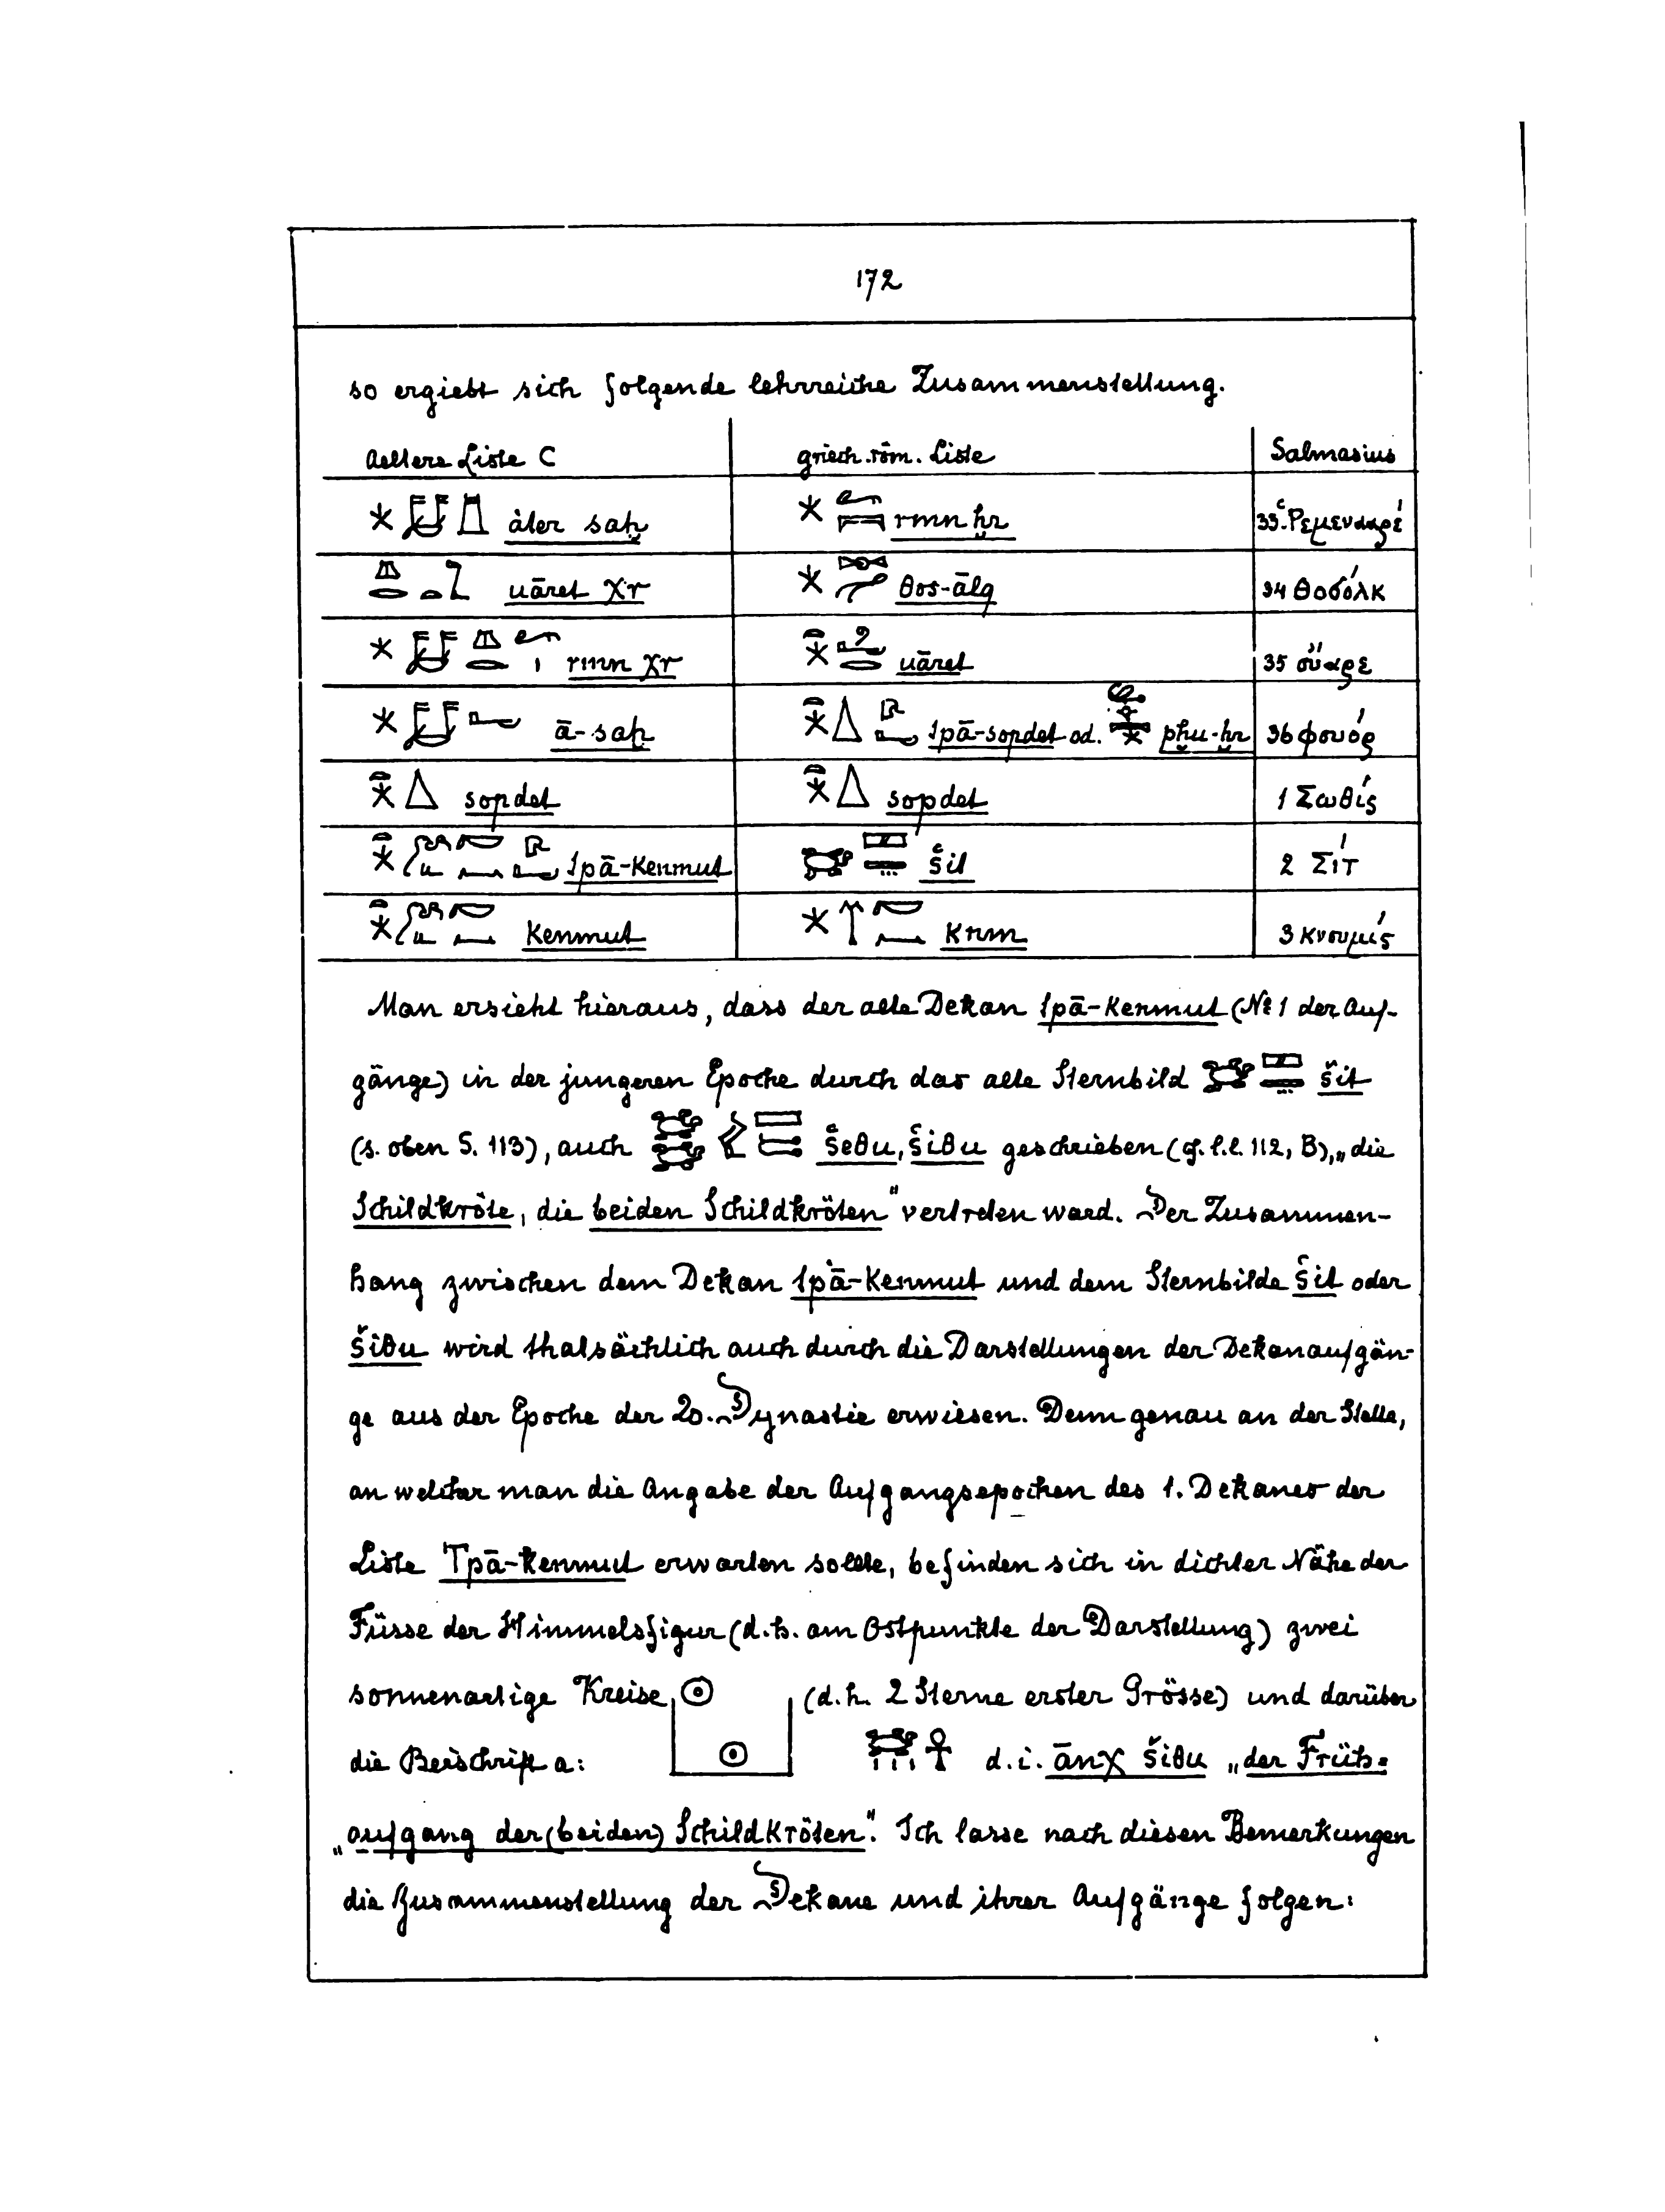 172
so ergiebt sich folgende lehrreiche Zusammenstellung.
Aeltere Liste C griech. röm. Liste Salmasius
àter saḥ rmn ḥr 33. Ῥεμενααρέ
uāret χr θos-ālq 34 Θοσόλκ
rmn χr uāret 35 οὔαρε
ā-saḥ tpā-sopdet od. pḥu-ḥr 36 φουόρ
sopdet sopdet 1 Σωθίς
tpā-Kenmut šit 2 Σίτ
Kenmut Knm 3 κνουμίς
Man ersieht hieraus, dass der alte Dekan tpā-Kenmut (№ 1 der Auf-
gänge) in der jungeren Epoche durch das alte Sternbild šit
(s. oben S. 113), auch šeθu, šiθu geschrieben (cf. l.l. 112, B), „die
Schildkröte, die beiden Schildkröten" vertreten ward. Der Zusammen-
hang zwischen dem Dekan tpā-Kenmut und dem Sternbilde šit oder
šiθu wird thatsächlich auch durch die Darstellungen der Dekanaufgän-
ge aus der Epoche der 20. Dynastie erwiesen. Denn genau an der Stelle,
an welcher man die Angabe der Aufgangsepochen des 1. Dekanes der
Liste Tpā-Kenmut erwarten sollte, befinden sich in dichter Nähe der
Füsse der Himmelsfigur (d.h. am Ostpunkte der Darstellung) zwei
sonnenartige Kreise (d.h. 2 Sterne erster Grösse) und darüber
die Beischrift a: d.i. ānχ šiθu „der Früh=
„aufgang der (beiden) Schildkröten". Ich lasse nach diesen Bemerkungen
die Zusammenstellung der Dekane und ihrer Aufgänge folgen: